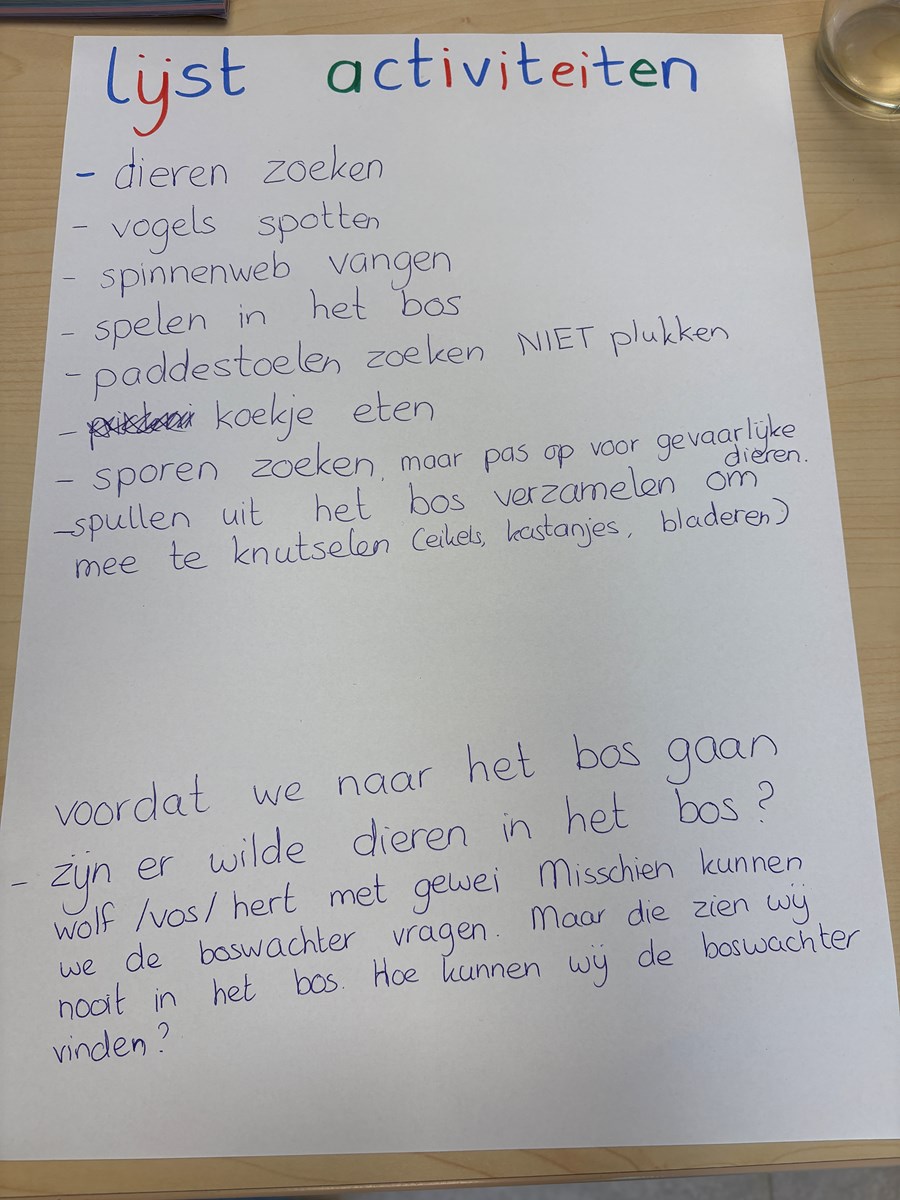 lijst activiteiten
- dieren zoeken
- vogels spotten
- spinnenweb vangen
- spelen in het bos
- paddestoelen zoeken NIET plukken
- koekje eten
- sporen zoeken, maar pas op voor gevaarlijke
dieren.
- spullen uit het bos verzamelen om
mee te knutselen (eikels, kastanjes, bladeren)
voordat we naar het bos gaan
- zijn er wilde dieren in het bos?
wolf /vos/ hert met gewei Misschien kunnen
we de boswachter vragen. Maar die zien wij
nooit in het bos. Hoe kunnen wij de boswachter
vinden?